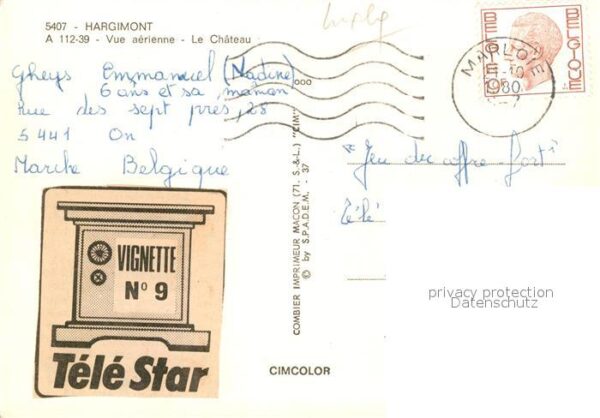 5407 - HARGIMONT
A 112-39 - Vue aérienne - Le Château
Gheys Emmanuel (Nadine)
6 ans et sa maman
Rue des sept près, 28
5441 On
Marche Belgique
VIGNETTE
N° 9
Télé Star
COMBIER IMPRIMEUR MACON (71. S.-&-L.) "CIM"
© by S.P.A.D.E.M. - 37
CIMCOLOR
BELGIQUE
BELGIE
MARLOIE
-10
1980
"Jeu du coffre-fort"
Télé
privacy protection
Datenschutz